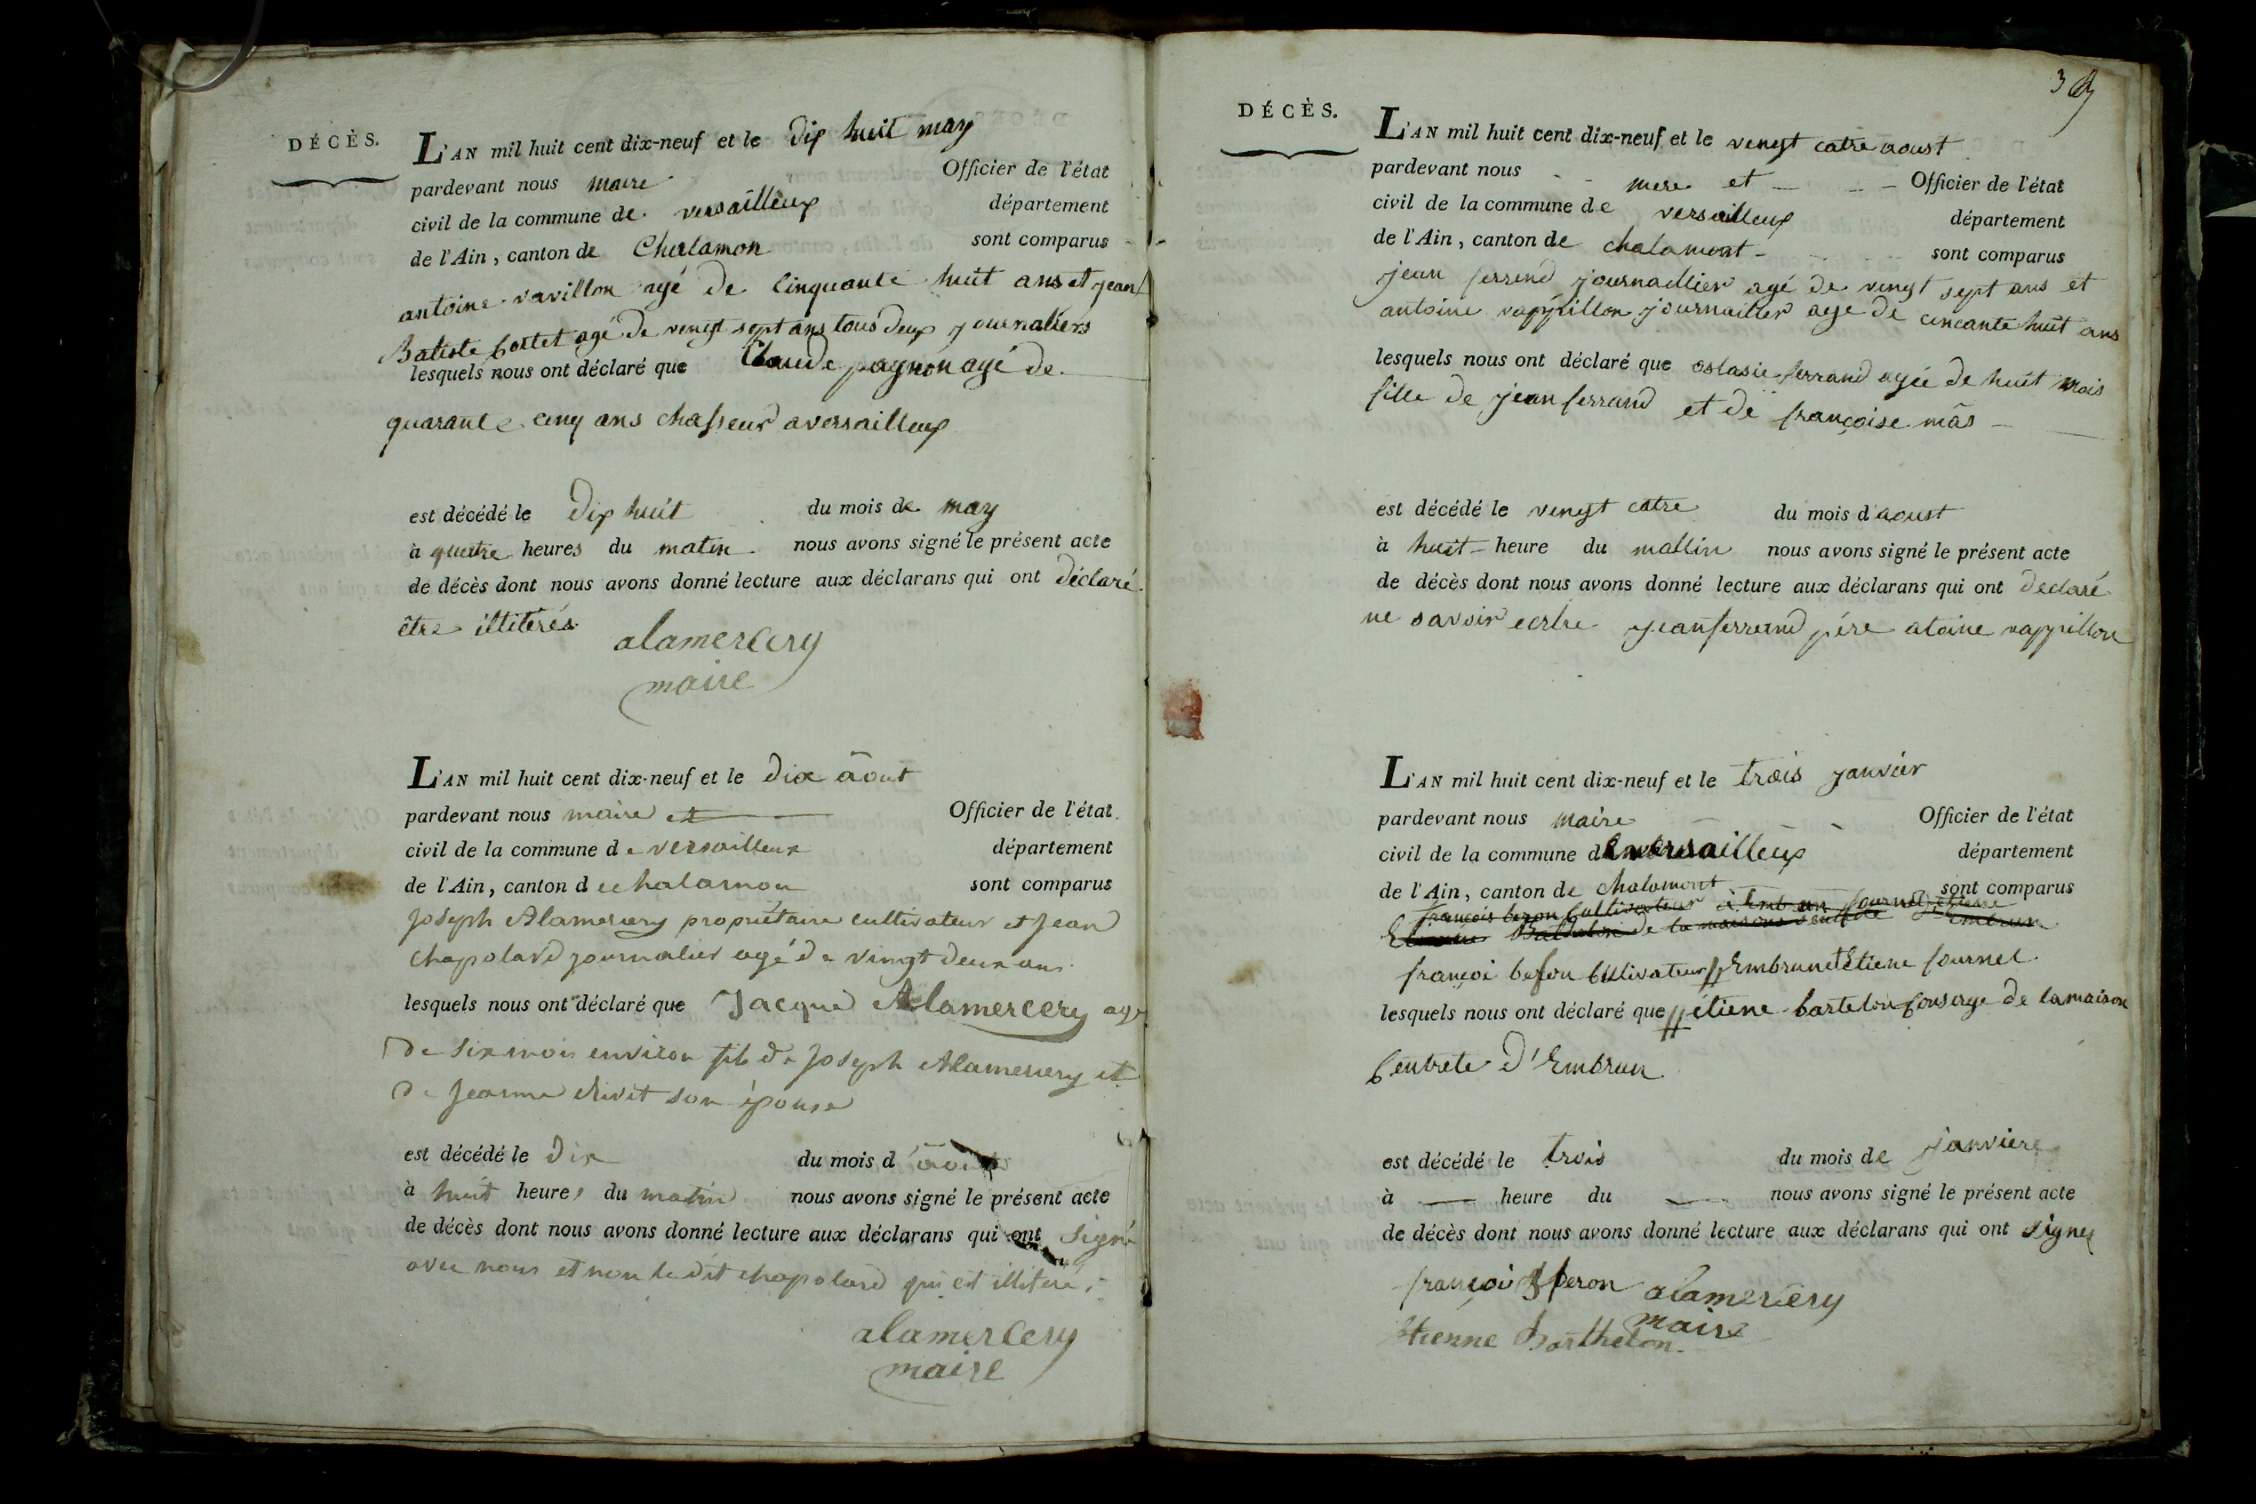 DÉCÈS.
L'AN mil huit cent dix-neuf et le dix huit may
pardevant nous maire Officier de l'état
civil de la commune de versailleux département
de l'Ain, canton de Chalamon sont comparus
antoine vavillon agé de Cinquante huit ans et jean
Batiste portet agé de vengt sept ans tous deux journaliers
lesquels nous ont déclaré que Claude pagnon agé de
quarante cinq ans chasseur a versailleux
est décédé le dix huit du mois de may
à quatre heures du matin nous avons signé le présent acte
de décès dont nous avons donné lecture aux déclarans qui ont déclaré
être illitérés
alamercery
maire
L'AN mil huit cent dix-neuf et le dix août
pardevant nous maire et Officier de l'état
civil de la commune de versailleux département
de l'Ain, canton de chalamon sont comparus
Joseph Alamercery propriétaire cultivateur et Jean
Chapolard journalier agé de vingt deux ans
lesquels nous ont déclaré que Jacque Alamercery agé
de six mois environ fils de Joseph Alamercery et
de Jeanne Rivet son épouse
est décédé le dix du mois d'août
à huit heures du matin nous avons signé le présent acte
de décès dont nous avons donné lecture aux déclarans qui ont signé
avec nous et non le dit chapolard qui est illiteré
alamercery
maire
39
DÉCÈS.
L'AN mil huit cent dix-neuf et le vengt catre aoust
pardevant nous mere et Officier de l'état
civil de la commune de versailleux département
de l'Ain, canton de chalamont sont comparus
jean ferrend journaillier agé de vengt sept ans et
antoine vappillon journailler age de cencante huit ans
lesquels nous ont déclaré que ostasie ferrand agée de huit mois
fille de jean ferrand et de françoise mas
est décédé le vengt catre du mois d'aoust
à huit heure du mattin nous avons signé le présent acte
de décès dont nous avons donné lecture aux déclarans qui ont declaré
ne savoir ecrire jean ferrand père atoine vappillon
L'AN mil huit cent dix-neuf et le trois janvier
pardevant nous maire Officier de l'état
civil de la commune de versailleux département
de l'Ain, canton de chalamont sont comparus
françois beron Cultivateur à Embrun fournel étiene
de la maison Embrun
françoi Cultivateur Embrun et Etiene fournel
lesquels nous ont déclaré que étiene bartelon consierge de la maison
Centrele d'Embrun
est décédé le trois du mois de janviere
à heure du nous avons signé le présent acte
de décès dont nous avons donné lecture aux déclarans qui ont signez
françoi peron alamercery
maire
Etienne Barthelon